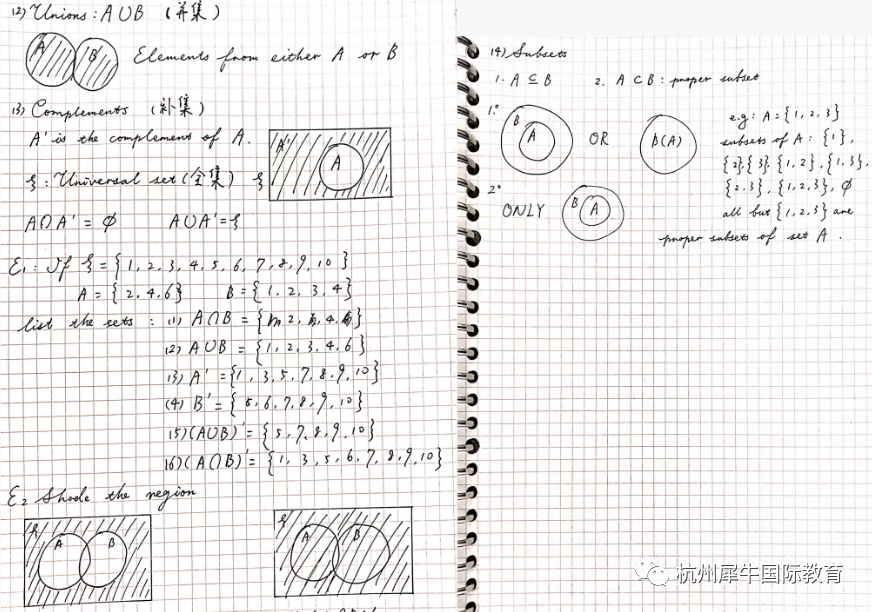 (2) Unions: A∪B (并集)
A B Elements from either A or B
(3) Complements (补集)
A' is the complement of A.
A' A
ξ: Universal set (全集) ξ
A∩A' = ∅ A∪A' = ξ
E1: If ξ = {1, 2, 3, 4, 5, 6, 7, 8, 9, 10}
A = {2, 4, 6} B = {1, 2, 3, 4}
list the sets: (1) A∩B = {2, 4}
(2) A∪B = {1, 2, 3, 4, 6}
(3) A' = {1, 3, 5, 7, 8, 9, 10}
(4) B' = {5, 6, 7, 8, 9, 10}
(5) (A∪B)' = {5, 7, 8, 9, 10}
(6) (A∩B)' = {1, 3, 5, 6, 7, 8, 9, 10}
E2 Shade the region
ξ A B
ξ A B
(4) Subsets
1. A ⊆ B 2. A ⊂ B: proper subset
1° B A OR B(A)
e.g: A = {1, 2, 3}
subsets of A: {1},
{2}, {3}, {1, 2}, {1, 3},
{2, 3}, {1, 2, 3}, ∅
2° ONLY B A
all but {1, 2, 3} are
proper subsets of set A.
杭州犀牛国际教育